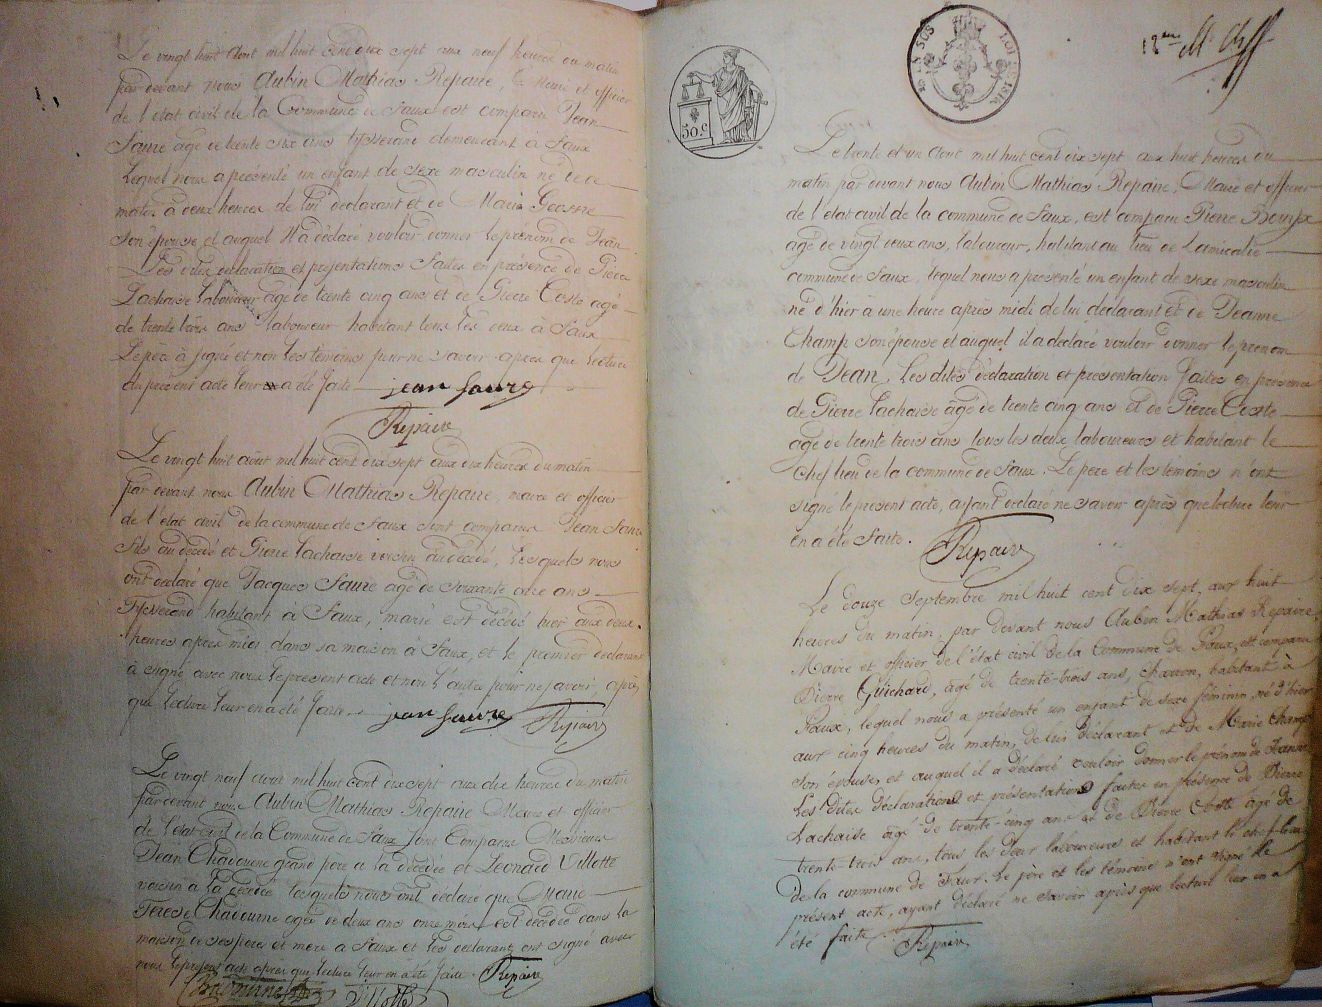 Le vingt huit aout mil huit cent dix sept aux neuf heures du matin
par devant nous Aubin Mathias Repaire, Maire et officier
de l'etat civil de la Commune de Faux est comparu Jean
Faure agé de trente six ans tisserand demeurant à Faux
Lequel nous a présenté un enfant de sexe masculin né de ce
matin à deux heures de lui déclarant et de Marie
son épouse et auquel il a déclaré vouloir donner le prénom de Jean
Les dites declaration et presentations faites en présence de Pierre
Lachaise Laboureur agé de trente cinq ans et de Pierre Coste agé
de trente trois ans laboureur habitant tous les deux à Faux
Le père à signé et non les témoins pour ne savoir apres que lecture
du présent acte leur a été faite jean faure
Repaire
Le vingt huit aout mil huit cent dix sept aux dix heures du matin
par devant nous Aubin Mathias Repaire, maire et officier
de l'état civil de la commune de Faux sont comparus Jean Faure
fils au décédé et Pierre Lachaise voisin au décédé, Lesquels nous
ont déclaré que Jacques Faure agé de soixante onze ans
Tisserand habitant à Faux, marié est décédé hier aux deux
heures apres midi dans sa maison à Faux, et le premier déclarant
à signé avec nous le present acte et non l'autre pour ne savoir, après
que lecture leur en a été faite. jean faure Repaire
Le vingt neuf aout mil huit cent dix sept aux dix heures du matin
par devant nous Aubin Mathias Repaire Maire et officier
de l'état civil de la Commune de Faux sont Comparus Messieurs
Jean Chadourne grand pere a la décédée et Leonard Villotte
voisin à la décédée lesquels nous ont déclaré que Marie
Terese Chadourne agée de deux ans onze mois est décédée dans la
maison de ses pere et mere a Faux et les declarants ont signé avec
nous le present acte apres que lecture leur en a été faite. Repaire
Chadourne Villotte
50.C
LOI
12me
Le trente et un aout mil huit cent dix sept aux huit heures du
matin par devant nous Aubin Mathias Repaire, Maire et officier
de l'etat civil de la commune de Faux, est comparu Pierre
agé de vingt deux ans, laboureur, habitant au lieu de
commune de Faux, lequel nous a presenté un enfant de sexe masculin
né d'hier à une heure après midi de lui declarant et de Jeanne
Champ son épouse et auquel il a déclaré vouloir donner le prenom
de Jean. Les dites déclaration et presentation faites en presence
de Pierre Lachaise âgé de trente cinq ans et de Pierre Coste
agé de trente trois ans tous les deux laboureurs et habitant le
Chef lieu de la commune de Faux. Le pere et les témoins n'ont
signé le present acte, ayant declaré ne savoir après que lecture leur
en a été faite.
Repaire
Le douze Septembre mil huit cent dix sept, aux huit
heures du matin, par devant nous Aubin Mathias Repaire
Maire et officier de l'état civil de la Commune de Faux, est comparu
Pierre Guichard, âgé de trente-trois ans, charron, habitant à
Faux, lequel nous a présenté un enfant de sexe féminin, né d'hier
aux cinq heures du matin, de lui déclarant et de Marie Champ
son épouse, et auquel il a déclaré vouloir donner le prénom de Jeanne
Les dites déclarations et présentations faites en présence de Pierre
Lachaise agé de trente-cinq ans et de Pierre Coste agé de
trente trois ans, tous les deux laboureurs et habitant le chef lieu
de la commune de Faux. Le père et les témoins n'ont signé le
présent acte, ayant déclaré ne savoir après que lecture leur en a
été faite.
Repaire